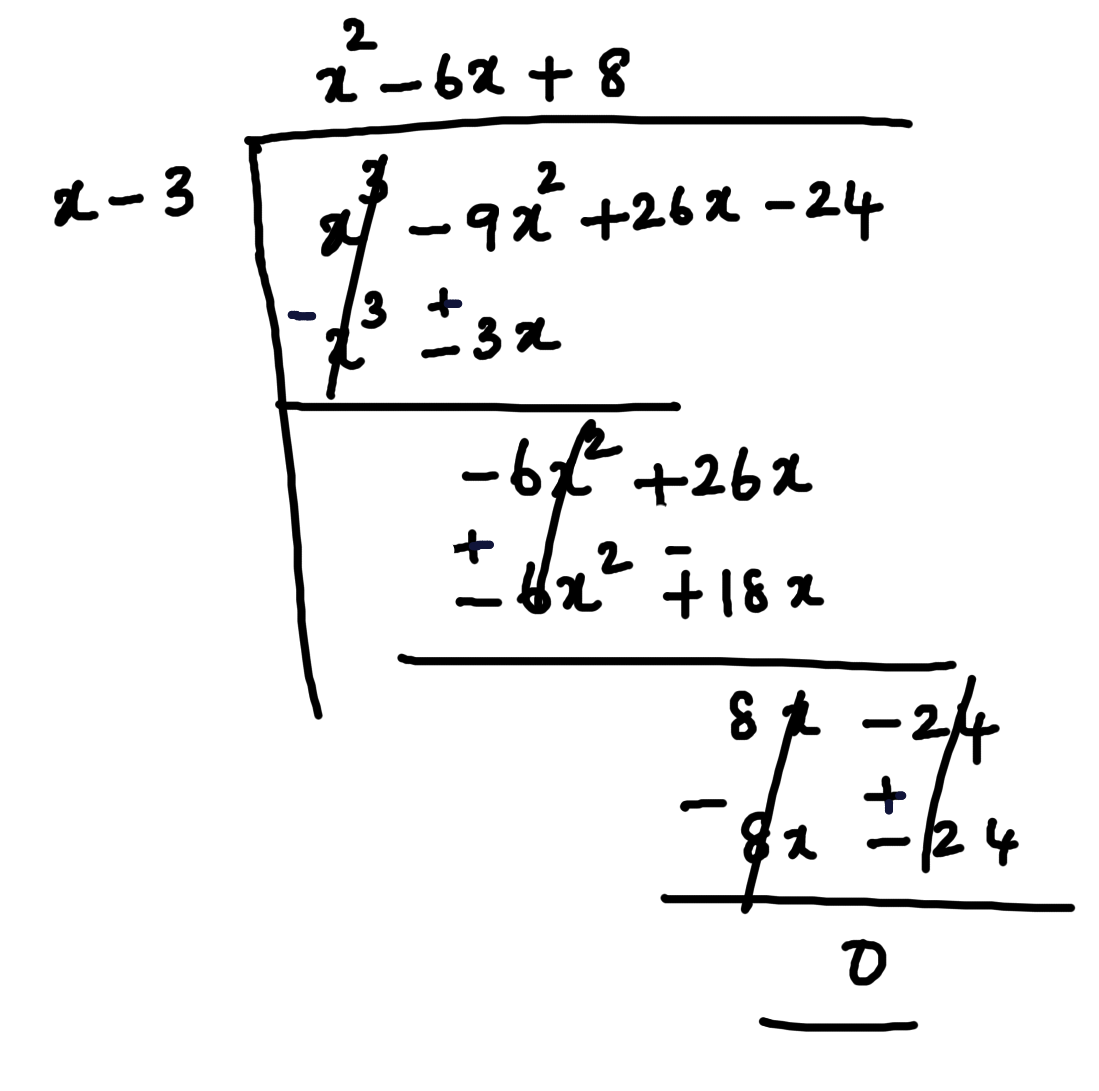 x² - 6x + 8
x - 3
x³ - 9x² + 26x - 24
- +
x³ - 3x
-6x² + 26x
+ -
- 6x² + 18x
8x - 24
- +
8x - 24
0